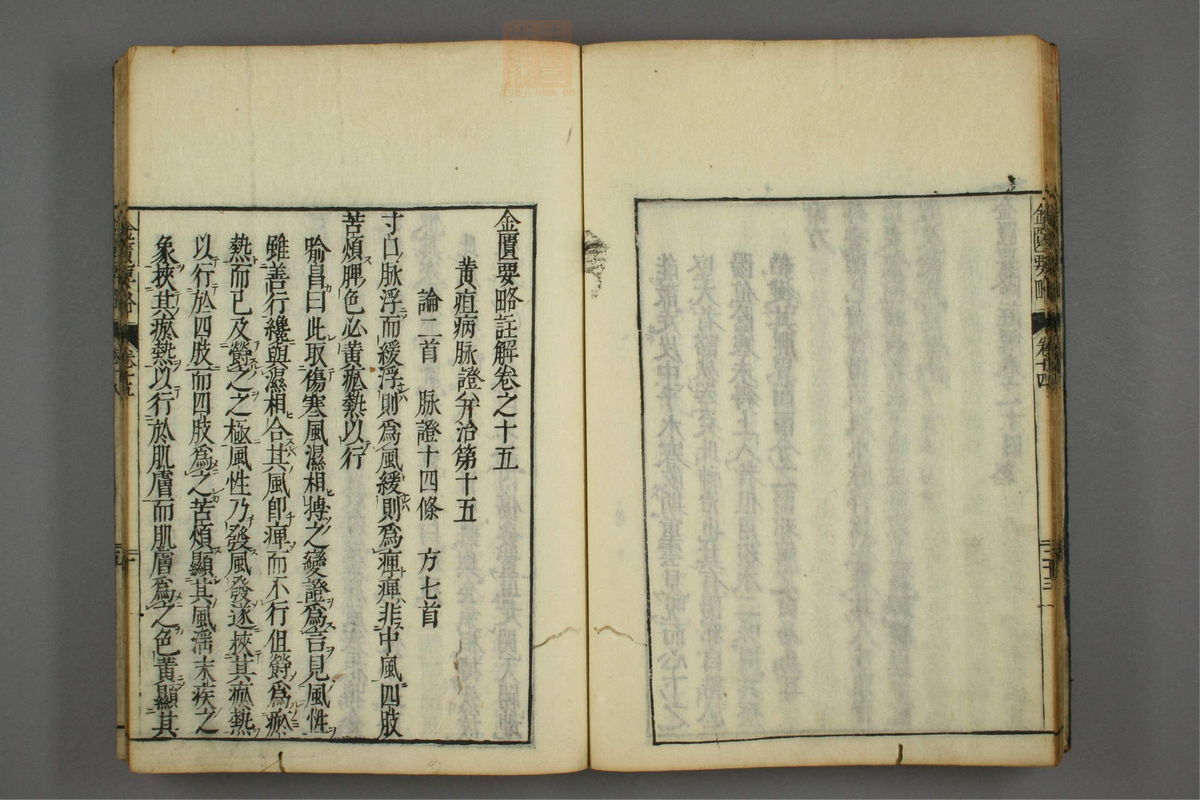 金匱要略註解卷之十五
黄疸病脉證并治第十五
論二首 脉證十四條 方七首
寸口脉浮而緩浮則為風緩則為痺痺非中風四肢
苦煩脾色必黄瘀熱以行
喻昌曰此取傷寒風濕相搏之變證為言見風性
雖善行纔與濕相合其風即痺而不行但欝為瘀
熱而已及欝之之極風性乃發風發遂挾其瘀熱
以行於四肢而四肢為之苦煩顯其風淫末疾之
象挾其瘀熱以行於肌膚而肌膚為之色黄顯其
卷十五
卷十四